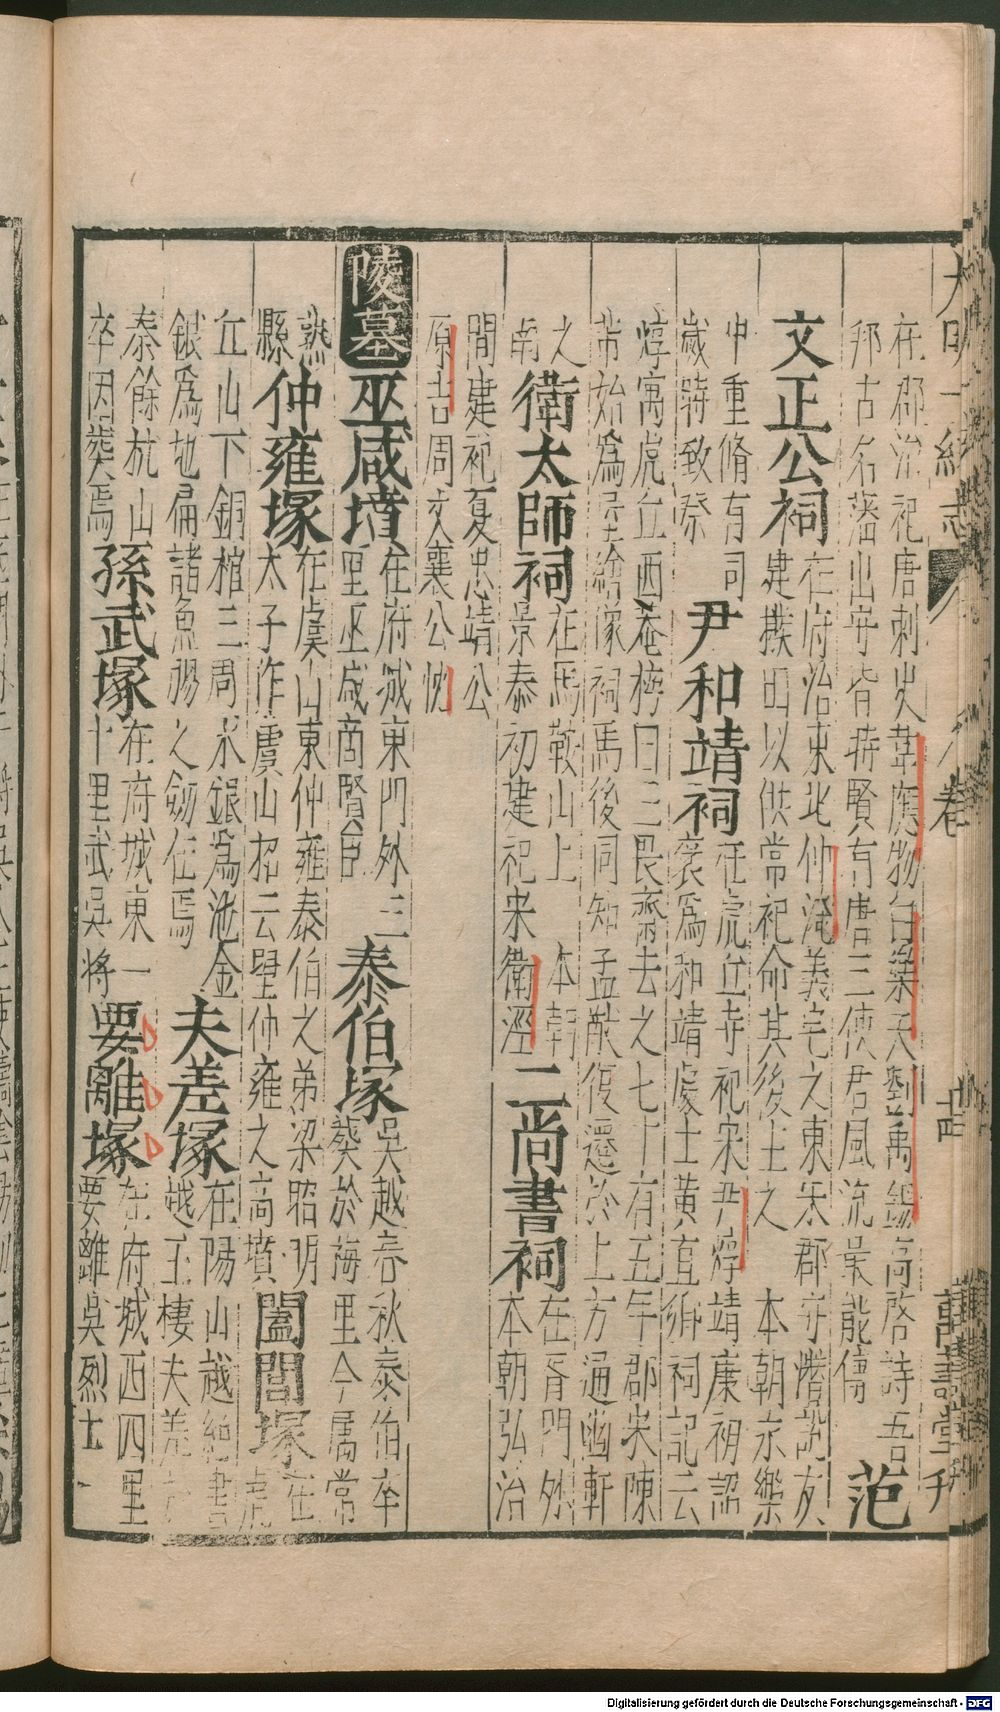 大明一統志 卷 萬壽堂刊
在郡治祀唐刺史韋應物白樂天劉禹錫高啓詩吾
邦古名藩出守皆時賢有唐三使君風流最能傳 范
文正公祠 在府治東北仲淹義宅之東宋郡守潛說友
建撥田以供常祀命其後主之 本朝永樂
中重脩有司
歲時致祭 尹和靖祠 在虎丘寺祀宋尹焞靖康初詔
褒爲和靖處士黃直卿祠記云
焞寓虎丘西菴榜曰三畏齋去之七十有五年郡宋陳
芾始爲堂繪像祠焉後同知孟猷復遷於上方通幽軒
之
南 衛太師祠 在馬鞍山上 本朝
景泰初建祀宋衛涇 二尚書祠 在胥門外
本朝弘治
間建祀夏忠靖公
原吉周文襄公忱
陵墓 巫咸墳 在府城東門外三
里巫咸商賢臣 泰伯冢 吳越春秋泰伯卒
葬於海里今屬常
熟
縣 仲雍冢 在虞山東仲雍泰伯之弟梁昭明
太子作虞山招云望仲雍之高墳 闔閭冢 在
虎
丘山下銅棺三周水銀爲池金
銀爲地扁諸魚腸之劒在焉 夫差冢 在陽山越絕書
越王棲夫差於
秦餘杭山
卒因葬焉 孫武冢 在府城東一
十里武吳將 要離冢 在府城西四里
要離吳烈士
Digitalisierung gefördert durch die Deutsche Forschungsgemeinschaft - DFG